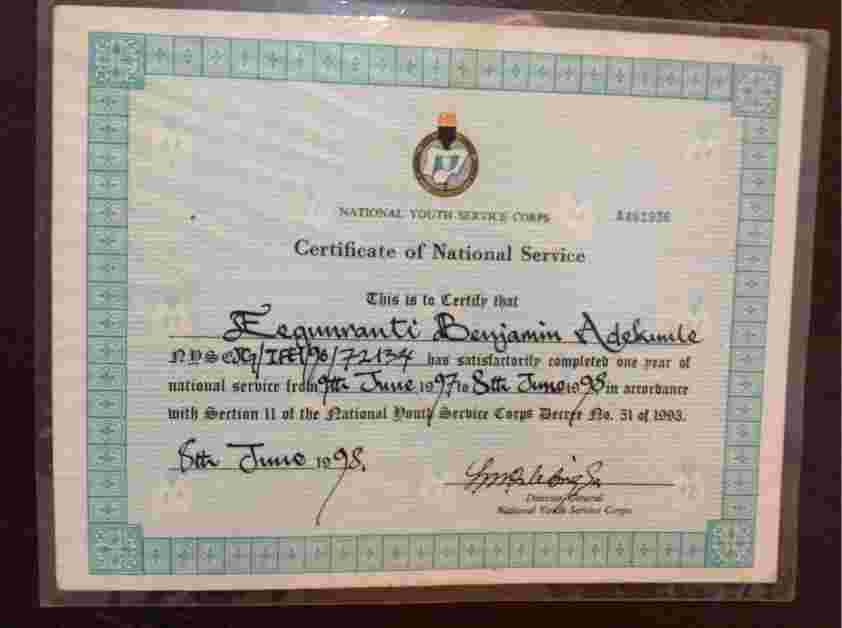 NATIONAL YOUTH SERVICE CORPS
Certificate of National Service
This is to Certify that
Benjamin Adekunle
NYSC /IFE/96/72134 has satisfactorily completed one year of
national service from 9th June 1997 to 8th June 1998 in accordance
with Section 11 of the National Youth Service Corps Decree No. 51 of 1993.
8th June 1998.
Director General
National Youth Service Corps